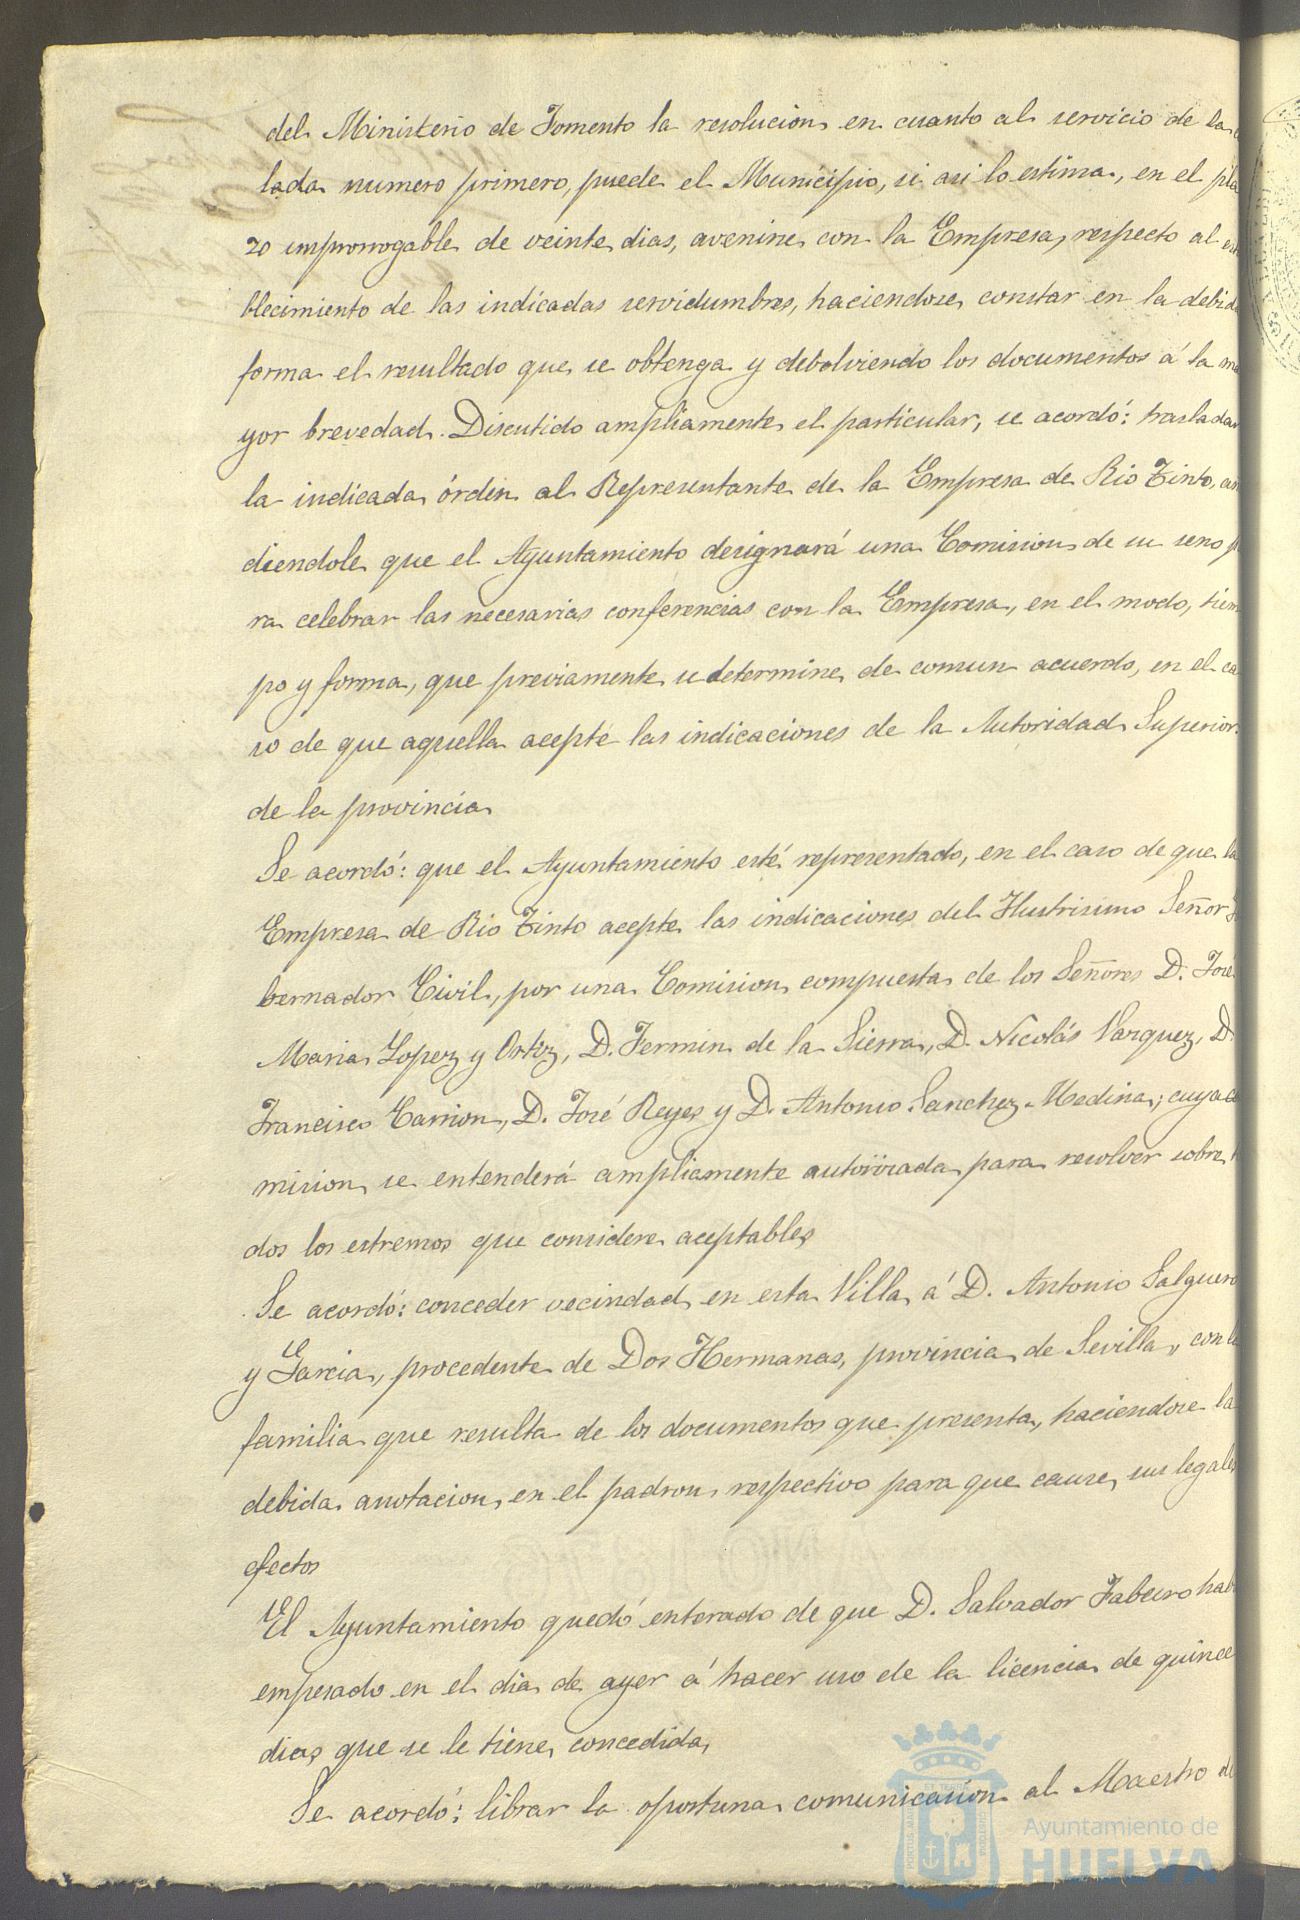 del Ministerio de Fomento la resolucion en cuanto al servicio de la
lada numero primero, puede el Municipio, si asi lo estima, en el pla
zo improrrogable de veinte dias, avenirse con la Empresa, respecto al
blecimiento de las indicadas servidumbres, haciendose constar en la debida
forma el resultado que se obtenga y debolviendo los documentos á la ma
yor brevedad. Discutido ampliamente el particular, se acordó: trasladar
la indicada órden al Representante de la Empresa de Rio Tinto,
diendole que el Ayuntamiento designará una Comision de su seno p
ra celebrar las necesarias conferencias con la Empresa, en el modo, tiem
po y forma, que previamente se determine de comun acuerdo, en el ca
so de que aquella acepte las indicaciones de la Autoridad Superior
de la provincia
Se acordó: que el Ayuntamiento esté representado, en el caso de que la
Empresa de Rio Tinto acepte las indicaciones del Ilustrisimo Señor
bernador Civil, por una Comision compuesta de los Señores D. José
Maria Lopez y Ortiz, D. Fermin de la Sierra, D. Nicolás Vazquez, D.
Francisco Carrion, D. José Reyes y D. Antonio Sanchez Medina; cuya co
mision se entenderá ampliamente autorizada para resolver sobre
dos los estremos que considere aceptables
Se acordó: conceder vecindad en esta Villa á D. Antonio Salguero
y Garcia, procedente de Dos Hermanas, provincia de Sevilla, con la
familia que resulta de los documentos que presenta, haciendose la
debida anotacion en el padron respectivo para que cause sus legales
efectos
El Ayuntamiento quedó enterado de que D. Salvador Fabeiro habi
empesado en el dia de ayer á hacer uso de la licencia de quince
dias que se le tiene concedida,
Se acordó: librar la oportuna comunicacion al Maestro de
Ayuntamiento de
HUELVA